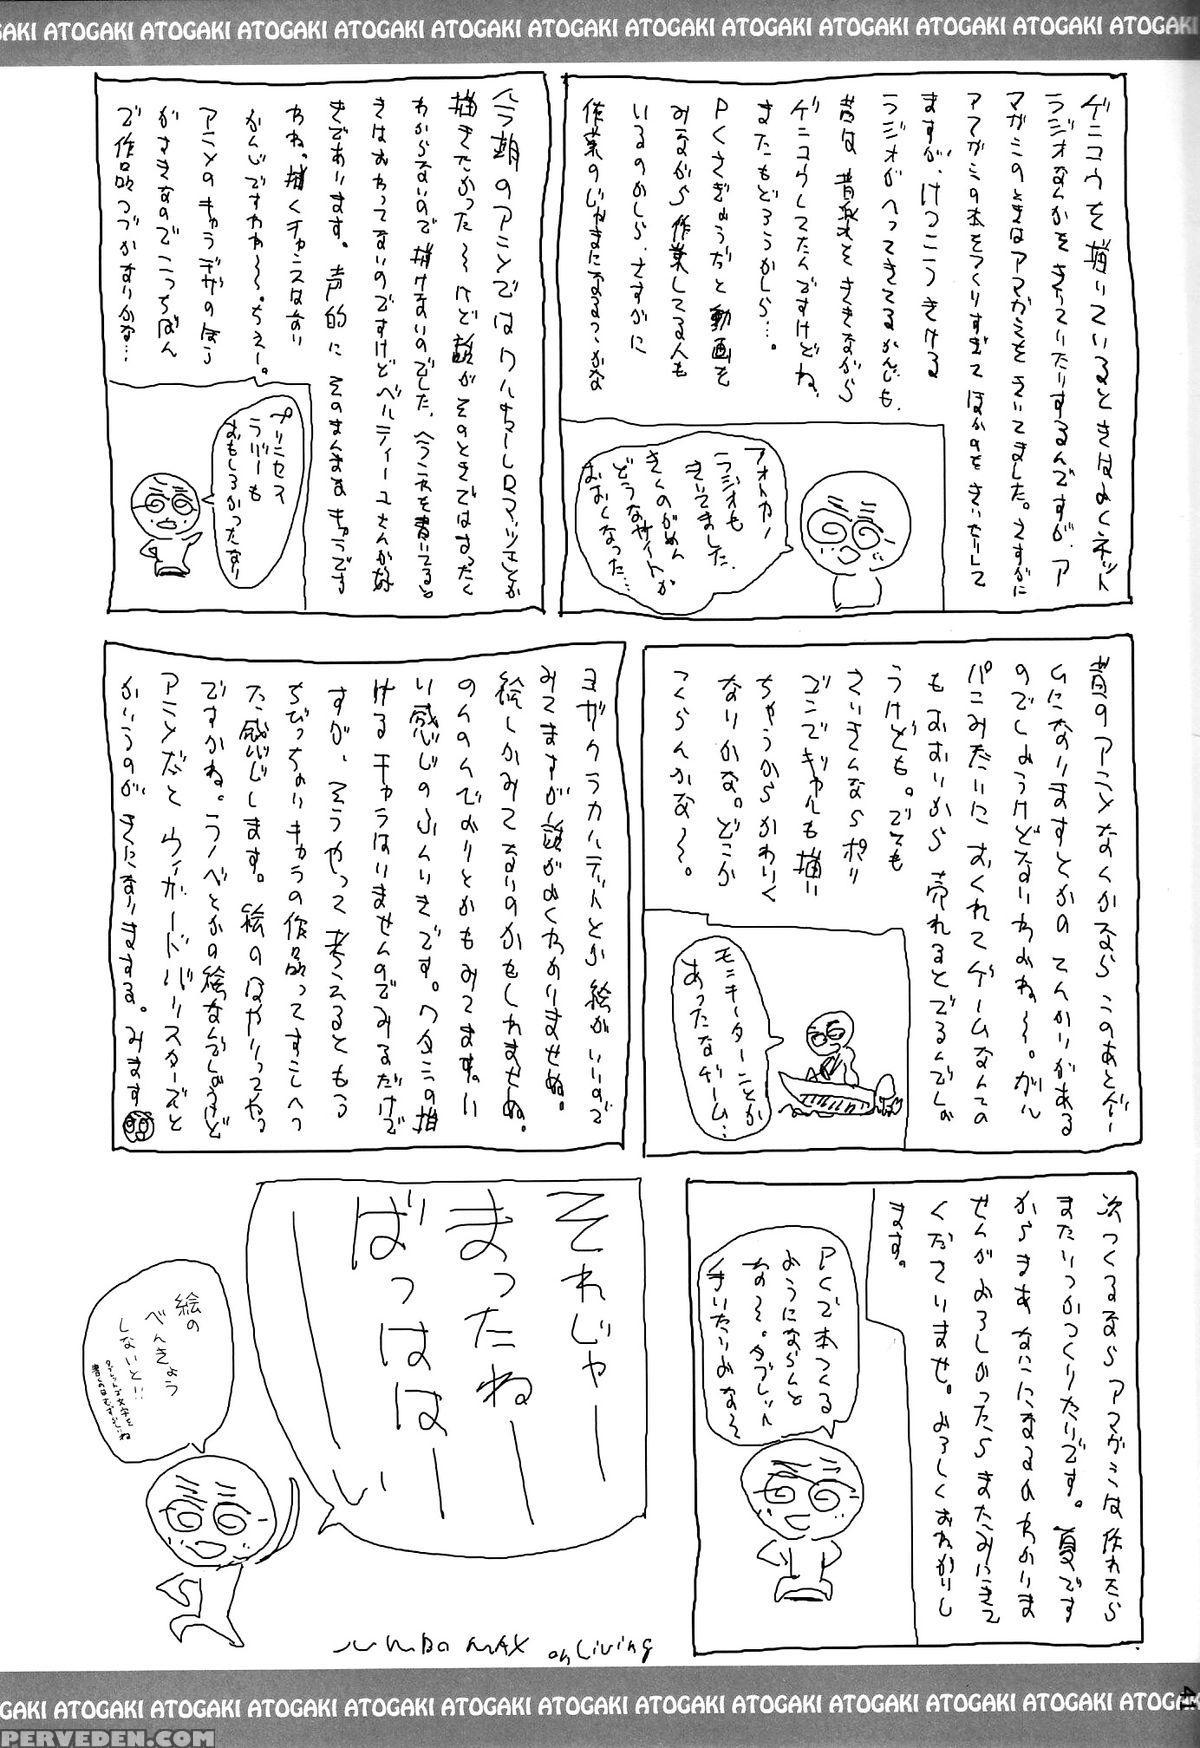 ATOGAKI ATOGAKI ATOGAKI ATOGAKI ATOGAKI ATOGAKI ATOGAKI ATOGAKI ATOGAKI ATOGAKI
ゲンコウを描いているときはよくネット
ラジオなんかをきいていたりするんですが、ア
マガミのときはアマガミをきいてました。さすがに
アマガミの本をつくりすぎて ほかのをきいたりして
ますが、けっこうきける
ラジオがへってきてるかんじも、
昔は音楽をききながら
ゲンコウしてたんですけどね、
またもどろうかしら…。
PCさぎょうだと動画を
みながら作業してる人も
いるのかしら、さすがに
作業のじゃまになるっかな
アオトカノ
ラジオも
きいてました、
きくのがめん
どうなサイトが
おおくなった…
今期のアニメでは
描きたかった～けど話がそのときではまったく
わからないので描けないのでした、
きはおわってないのですけどベルティーユさんが好
きであります。声的に そのまんまなキャラです
わね。描くチャンスはない
かんじですわ～。ちぇー。
アニメのキャラデザのほう
がすきなのでこっちばん
で作品つづかないかな…
プリンセス
ラバーも
おもしろかったなり
昔のアニメなんかなら このあとゲー
ムになりますとかの てんかいがある
のでしょうけどないわよね～。ガル
パンみたいに おくれてゲームなんての
もおおいから 売れるとでるんでしょ
うけども。でても
さいきんならポリ
ゴンでギャルも描い
ちゃうからかわいく
ないかな。どこか
つくらんかな～。
モンキーターンとか
あったなゲーム…
ヨザクラカルテットとか 絵がいいので
みてますが 話がよくわかりませぬ。
絵しかみてないのかもしれませぬ。
のんのんびよりとかもみてます。い
い感じのふんいきです。
けるキャラはいませんのでみるだけで
すが、そうやって考えるともう
ちびっちゃいキャラの作品ってすこしへっ
た感じします。絵のはやりってやつ
ですかね。ラノベとかの絵なんでしょうけど
アニメだと ウィザードバリスターズんと
かいうのが きになりまする。みます
次つくるなら アマガミは 作れたら
またいつかつくりたいです。夏です
からまあなにになるのかわかりま
せんがよろしかったらまたみにきて
くださいませ。よろしくおねがいし
ます。
PCで本つくる
ようにならんと
な～。タブレット
それじゃーー
まったねーー
ばっはは
はーーい
絵の
べんきょう
しないと!!
タブレットで文字を
書くのはむずかしいね
JUMBO MAX on Living
OGAKI ATOGAKI ATOGAKI ATOGAKI ATOGAKI ATOGAKI ATOGAKI ATOGAKI ATOGAKI ATOGAKI
PERVEDEN.COM